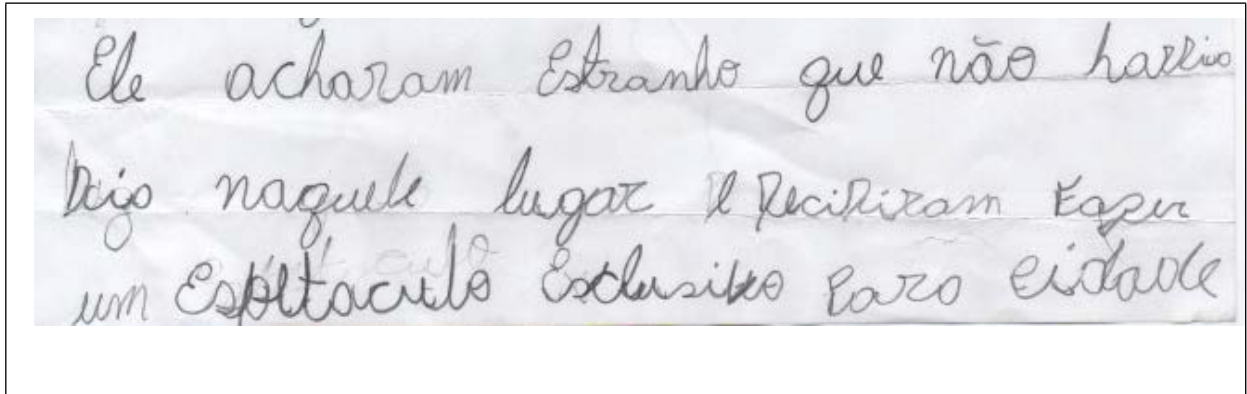 Ele acharam Estranho que não
naquele lugar e Decidiram Fazer
um Espetaculo Esclusivo Para cidade